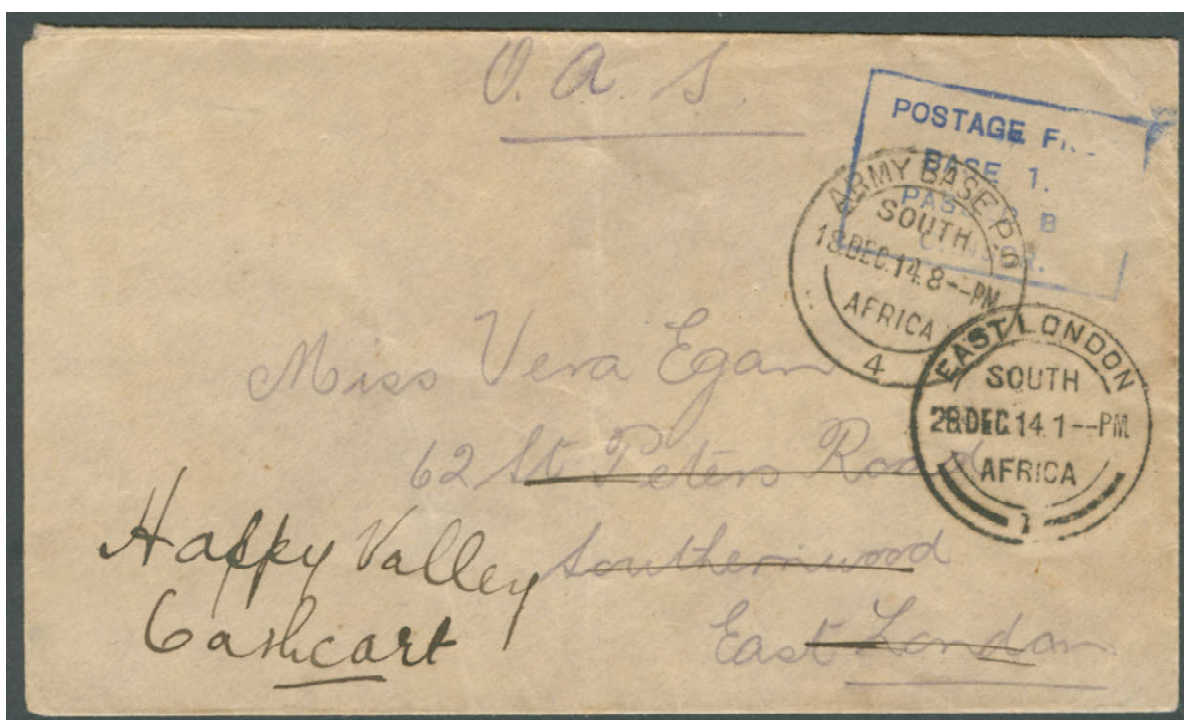 O. A. S.
POSTAGE
BASE 1.
B
ARMY BASE P.O
SOUTH
18 DEC.14.8--PM
AFRICA
4
EAST LONDON
SOUTH
28 DEC.14 1--PM.
AFRICA
1
Miss Vera Egan
62 St Peters Road
Southernwood
East London
Happy Valley
Cashcart